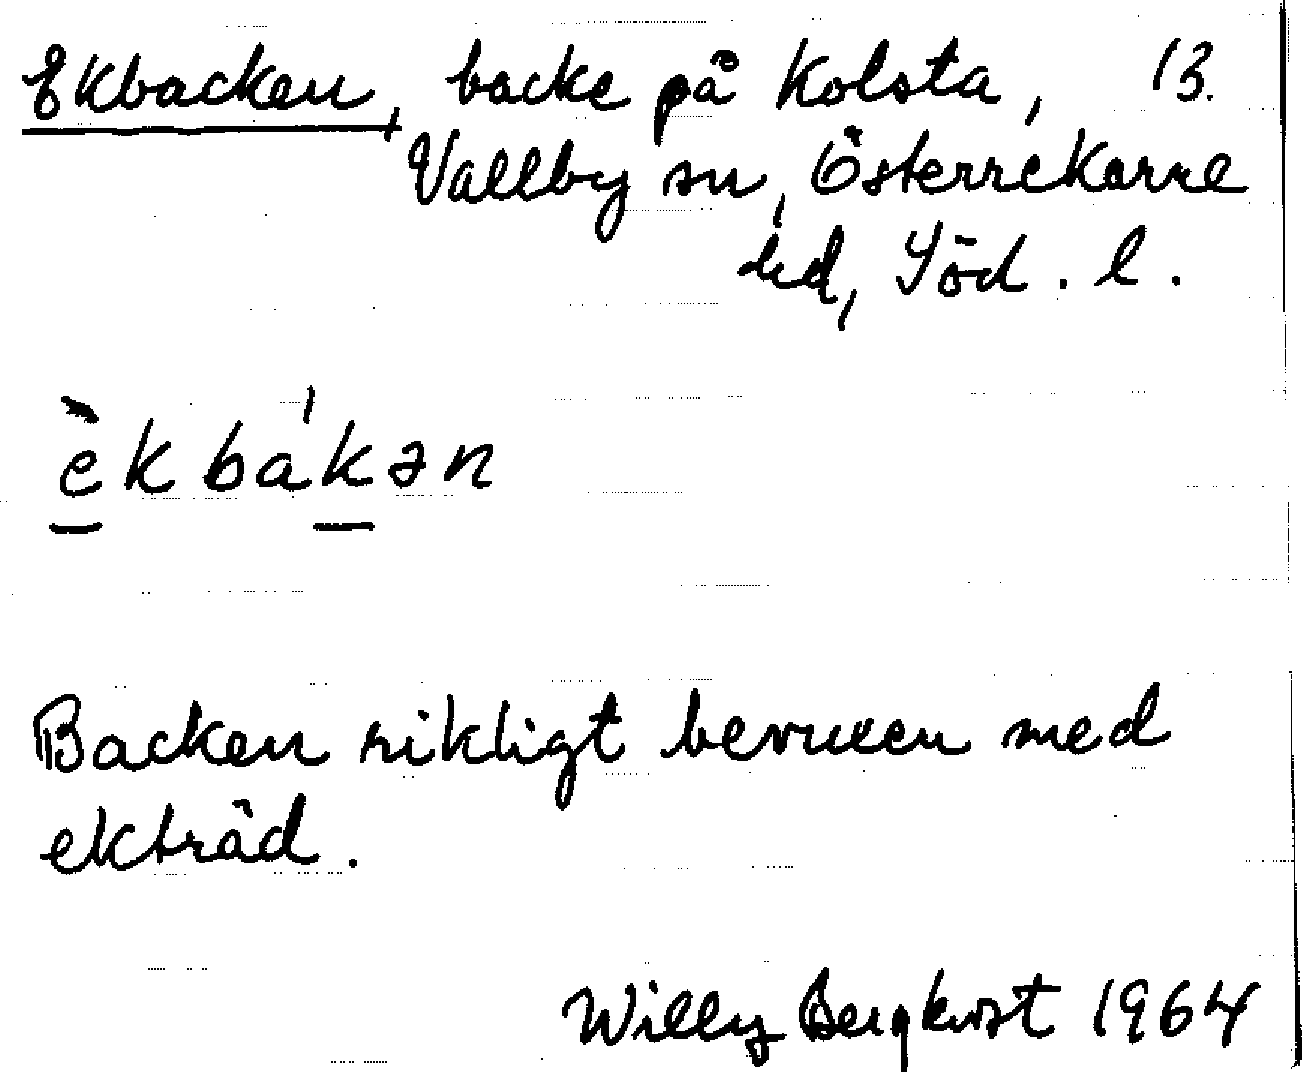 Ekbacken, backe på Kolsta, 13.
Vallby sn, Österrekarne
hd, Söd. l.
èkbá'kən
Backen rikligt bevuxen med
ekträd.
Willy Bergkvist 1964